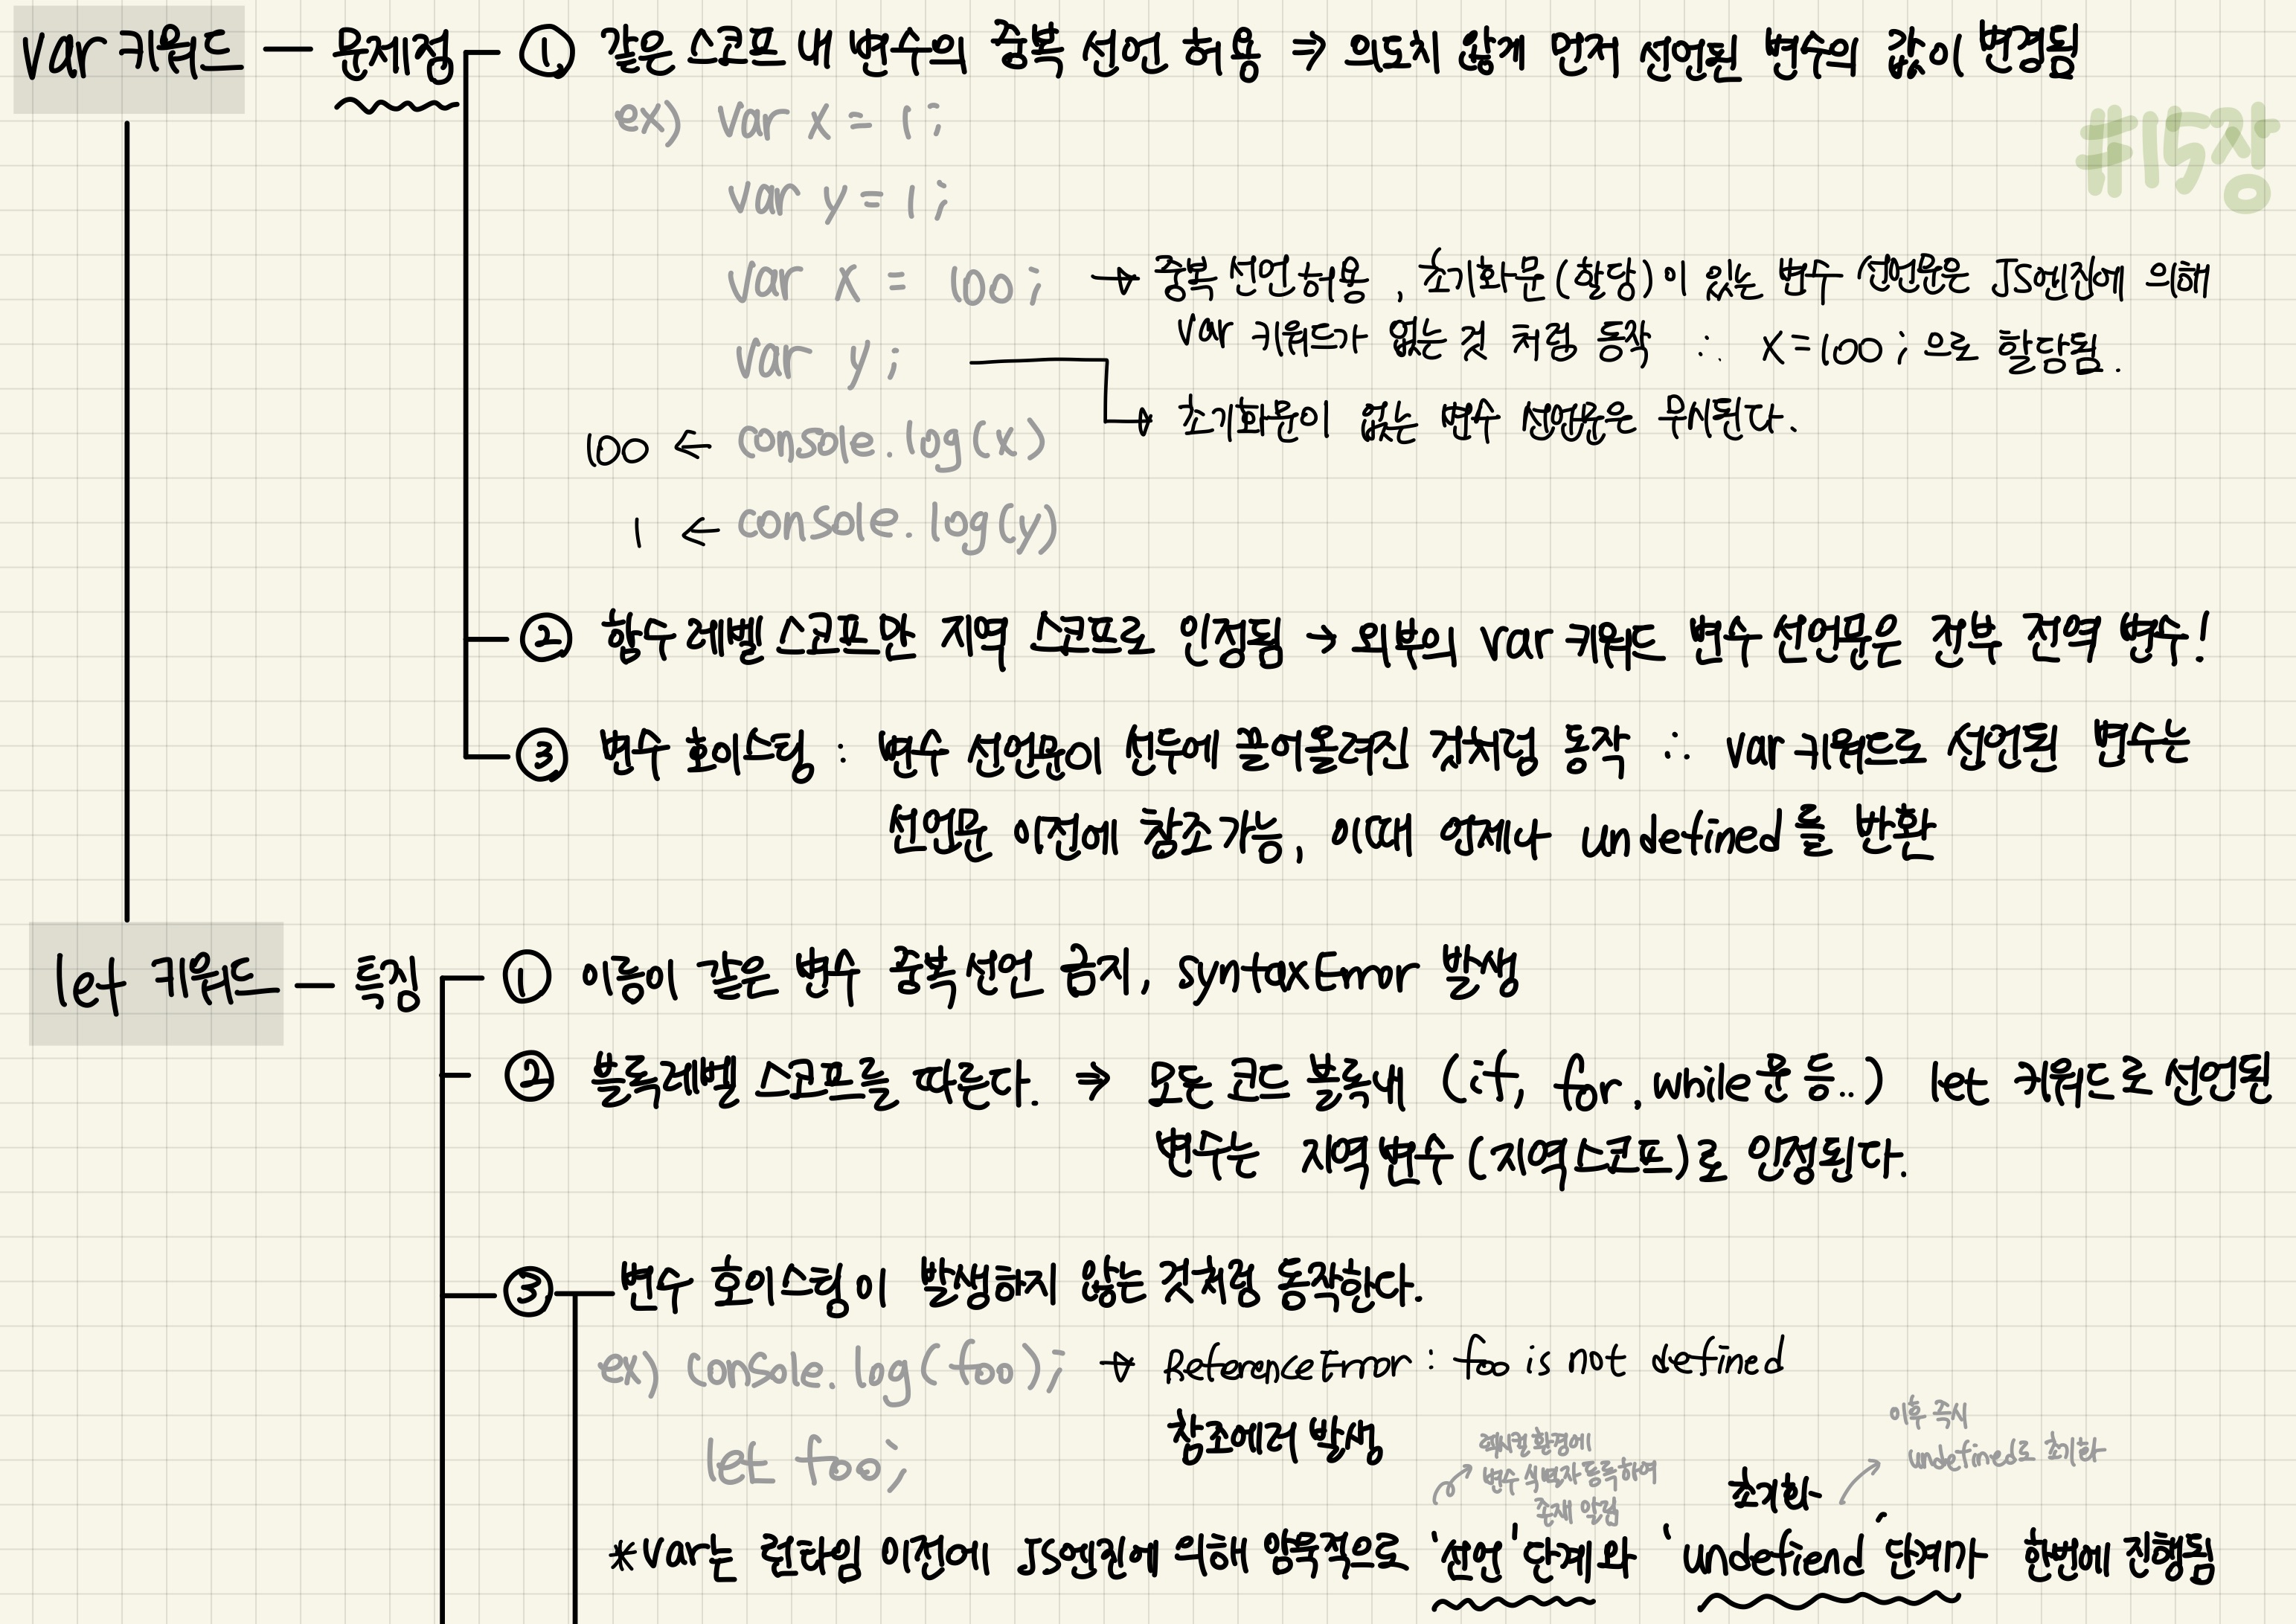 var 키워드 — 문제점 ① 같은 스코프 내 변수의 중복 선언 허용 ⇒ 의도치 않게 먼저 선언된 변수의 값이 변경됨
#15장
ex) var x = 1;
var y = 1;
var x = 100; → 중복 선언 허용, 초기화문(할당)이 있는 변수 선언문은 JS엔진에 의해
var 키워드가 없는 것 처럼 동작 ∴ x=100; 으로 할당됨.
var y;
→ 초기화문이 없는 변수 선언문은 무시된다.
100 ← console.log(x)
1 ← console.log(y)
② 함수 레벨 스코프만 지역 스코프로 인정됨 → 외부의 var 키워드 변수 선언문은 전부 전역 변수!
③ 변수 호이스팅 : 변수 선언문이 선두에 끌어올려진 것처럼 동작 ∴ var 키워드로 선언된 변수는
선언문 이전에 참조가능, 이때 언제나 undefined를 반환
let 키워드 — 특징 ① 이름이 같은 변수 중복선언 금지, syntaxError 발생
② 블록레벨 스코프를 따른다. ⇒ 모든 코드 블록내 (if, for, while문 등..) let 키워드로 선언된
변수는 지역변수(지역스코프)로 인정된다.
③ 변수 호이스팅이 발생하지 않는 것처럼 동작한다.
ex) console.log(foo); → ReferenceError : foo is not defined
let foo;
참조에러 발생
렉시컬 환경에
변수 식별자 등록하여
존재 알림
이후 즉시
undefined로 초기화
초기화
*var는 런타임 이전에 JS엔진에 의해 암묵적으로 '선언' 단계와 'undefiend' 단계가 한번에 진행됨